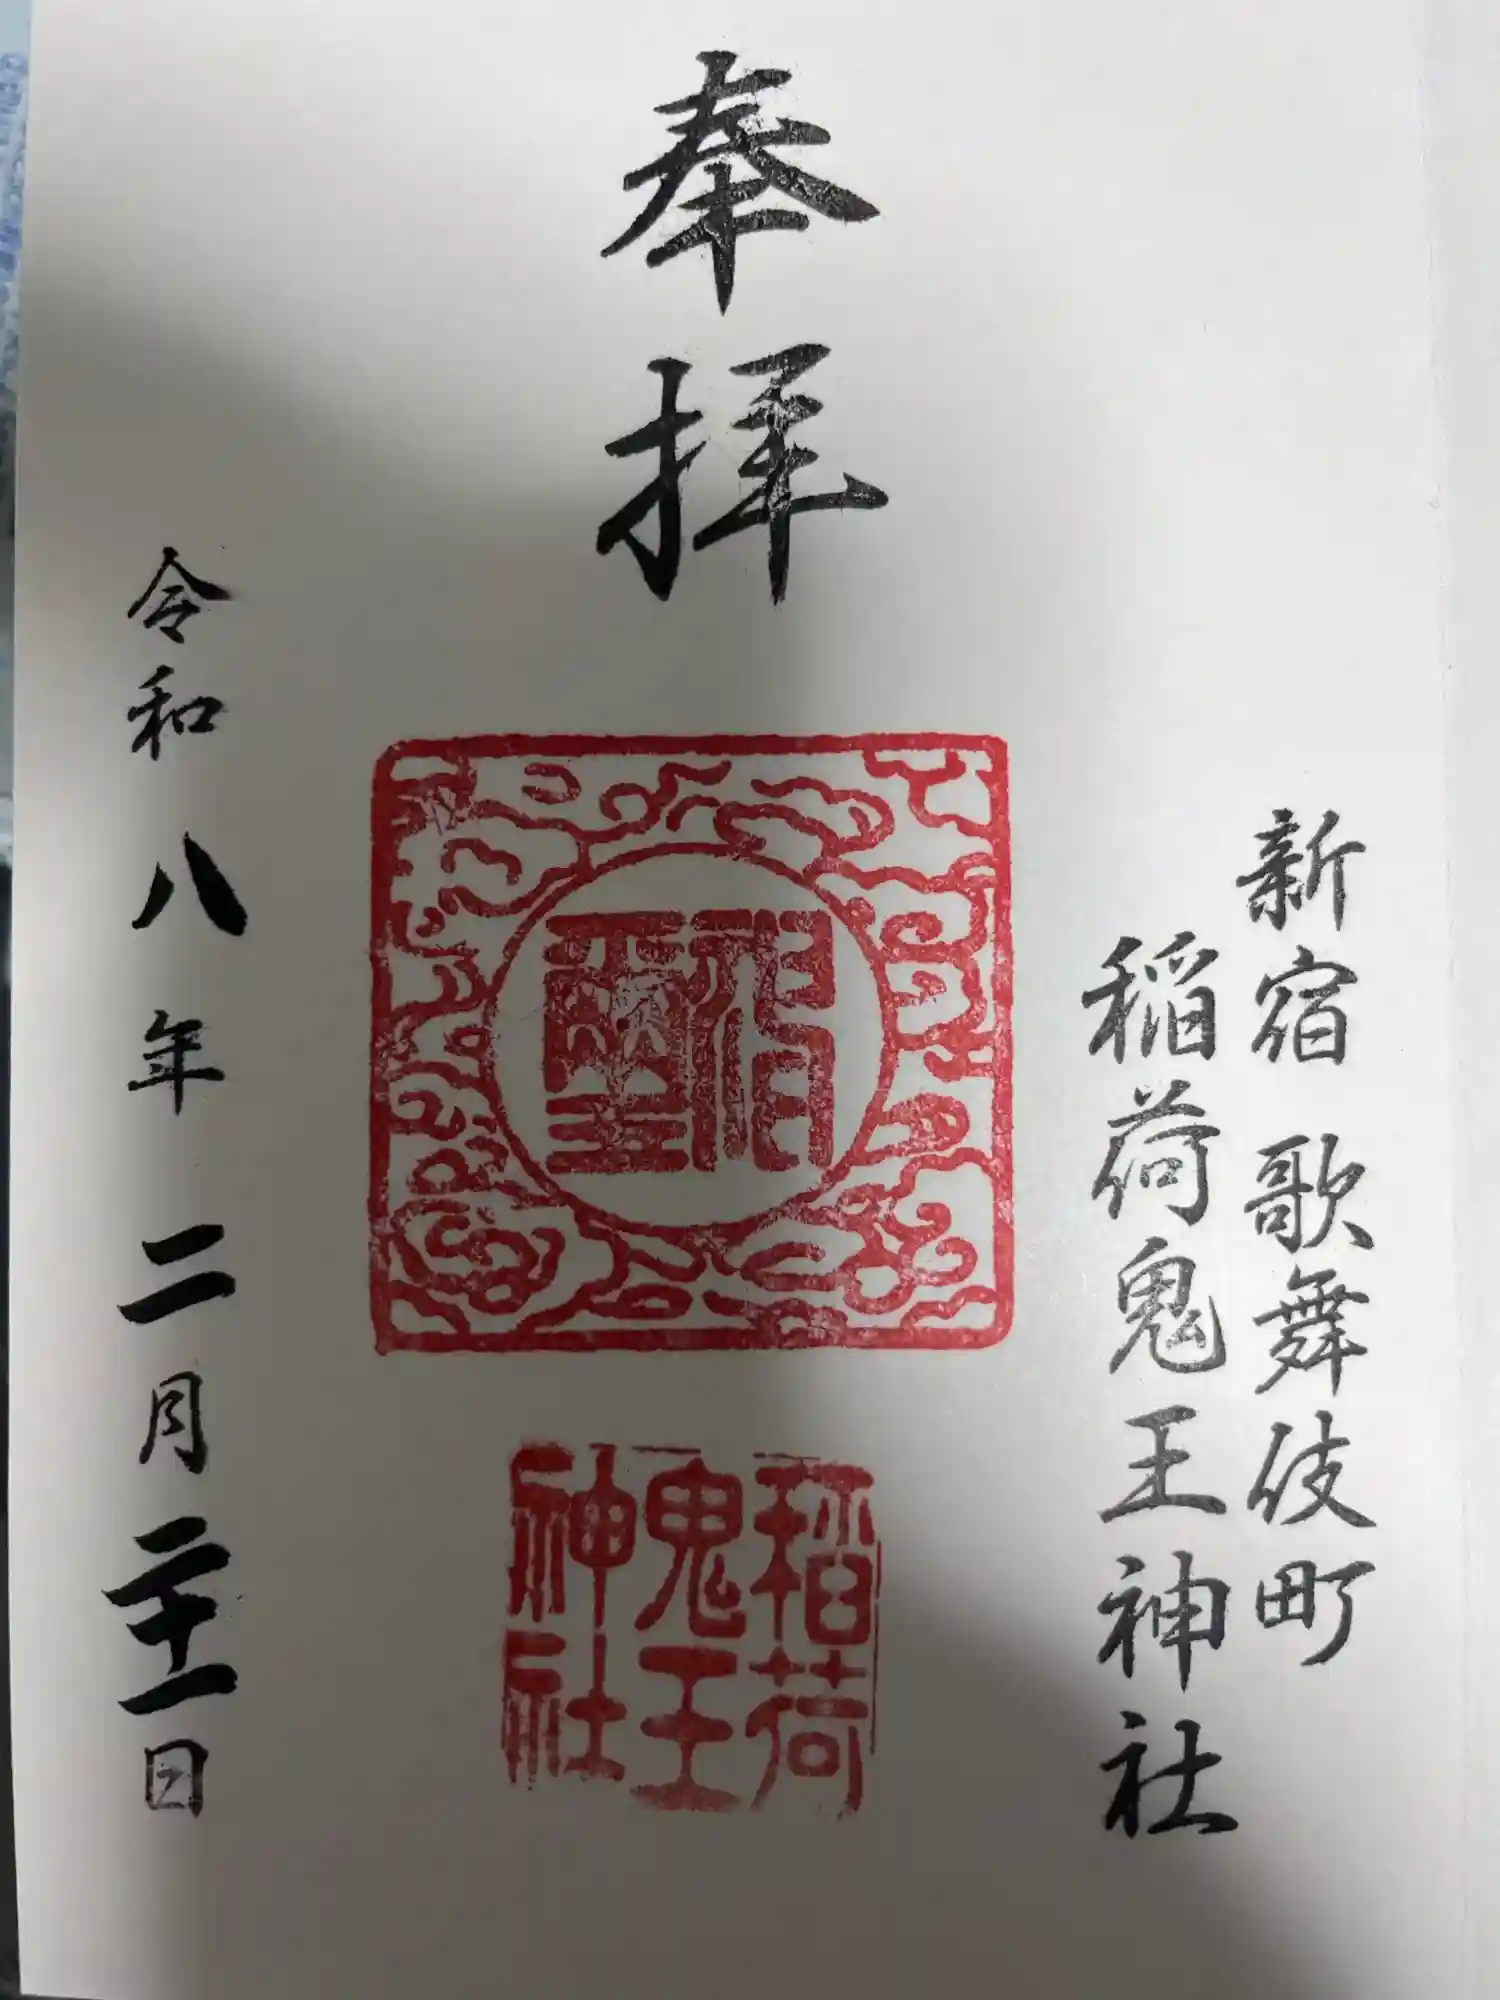 奉拝
新宿歌舞伎町
稲荷鬼王神社
稲荷
鬼王
神社
令和八年二月二十一日